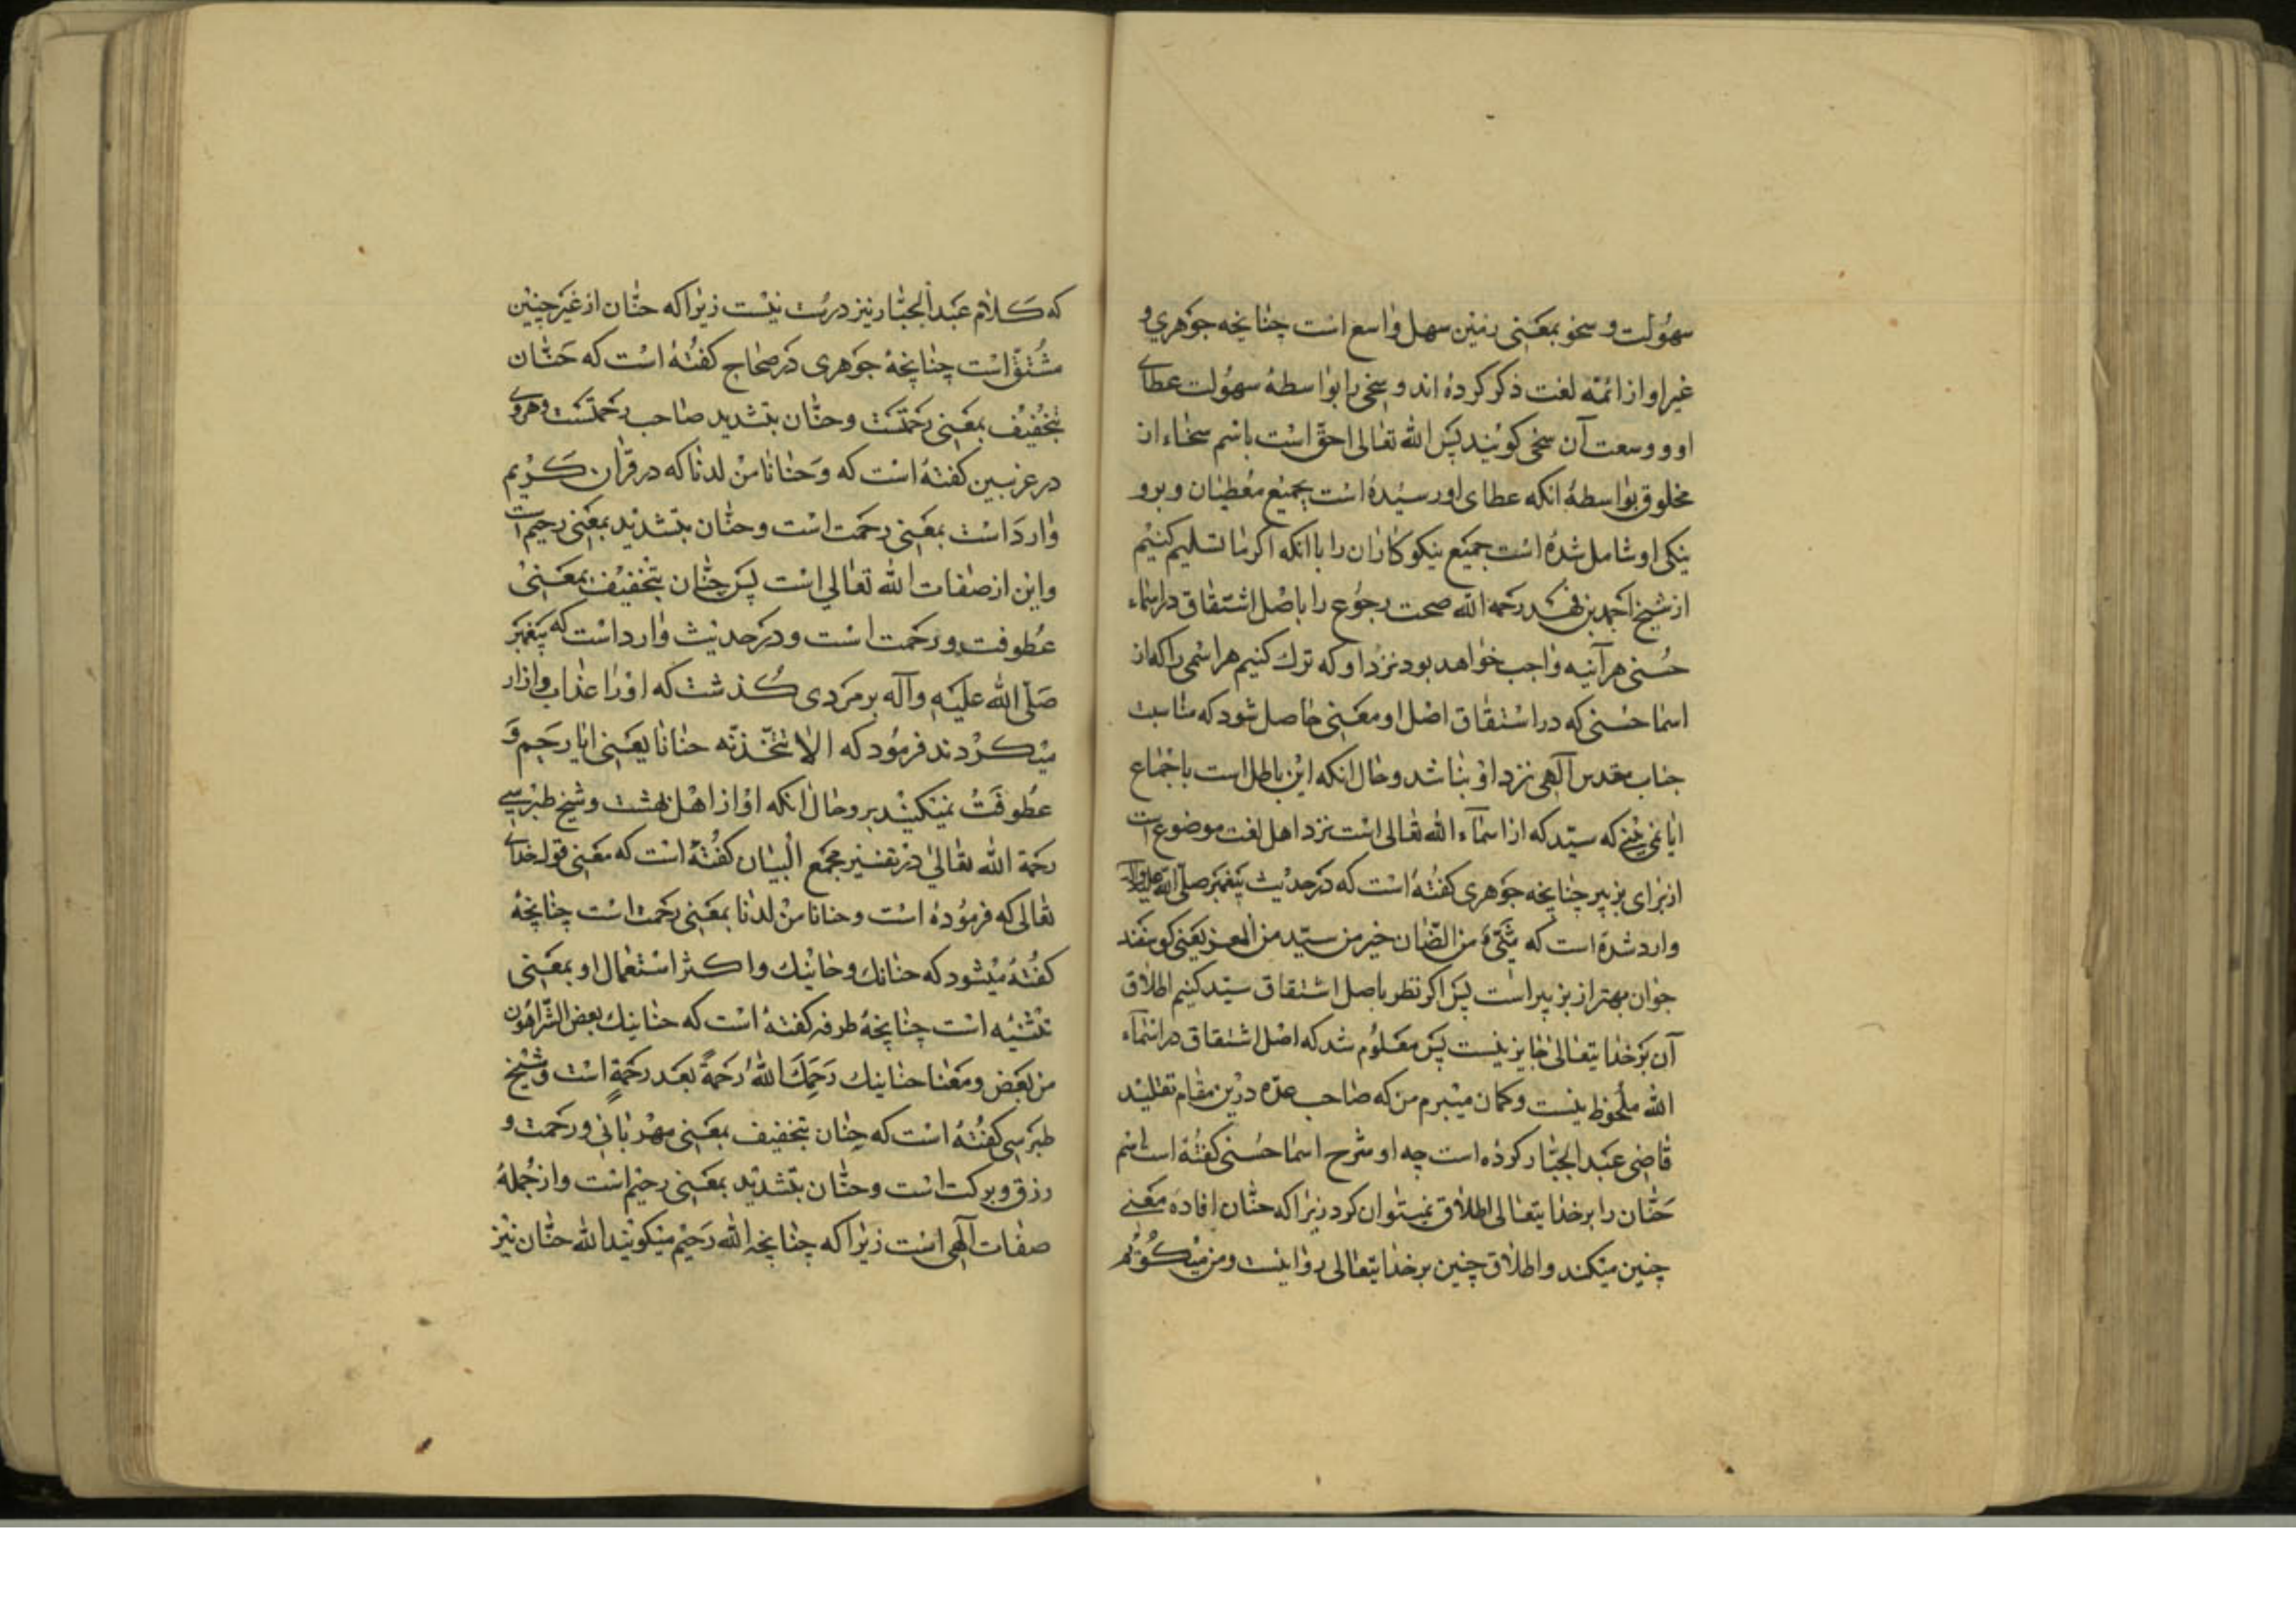 سهولت و سخو بمعنی زمین سهل واسع است چنانچه جوهری و
غیر او از ائمه لغت ذکر کرده اند و سخی را بواسطهٔ سهولت عطای
او و وسعت آن سخی کویند پس الله تعالی احق است باسم سخاء از
مخلوق بواسطهٔ انکه عطای او رسیده است بجمیع معطیان و برو
نیکی او شامل شده است جمیع نیکوکاران را با انکه اکر ما تسلیم کنیم
از شیخ احمد بن فهد رحمه الله صحت رجوع را باصل اشتقاق در اسماء
حسنی هر آینه واجب خواهد بود نزد او که ترك کنیم هر اسمی را که از
اسما حسنی که در اشتقاق اصل او معنی حاصل شود که مناسبت
جناب مقدس آلهی نزد او نباشد و حال انکه این باطل است باجماع
ایا نمی بینی که سید که از اسمآء الله تعالی است نزد اهل لغت موضوع است
از برای بز پیر چنانچه جوهری کفته است که در حدیث پیغمبر صلی الله علیه وآله
وارد شده است که ثنیء من الضان خیر من سید من المعز یعنی کوسفند
جوان بهتر از بز پیر است پس اکر نظر باصل اشتقاق سید کنیم اطلاق
آن بر خدایتعالی جایز نیست پس معلوم شد که اصل اشتقاق در اسمآء
الله ملحوظ نیست و کمان میبرم من که صاحب عده درین مقام تقلید
قاضی عبد الجبار کرده است چه او شرح اسما حسنی کفته است اسم
حنان را بر خدایتعالی اطلاق نمیتوان کرد زیرا که حنان افاده معنی
چنین میکند و اطلاق چنین بر خدایتعالی روا نیست و من میکویم
که کلام عبد الجبار نیز درست نیست زیرا که حنان از غیر چنین
مشتق است چنانچهٔ جوهری در صحاح کفته است که حنان
بتخفیف بمعنی رحمتست و حنان بتشدید صاحب رحمتست و هروی
در غریبین کفته است که و حنانا من لدنا که در قرآن کریم
وارد است بمعنی رحمت است و حنان بتشدید بمعنی رحیم است
و این از صفات الله تعالی است پس حنان بتخفیف بمعنی
عطوفت و رحمت است و در حدیث وارد است که پیغمبر
صلی الله علیه وآله بر مردی کذشت که او را عذاب و ازار
میکردند فرمود که الا تتخذنه حنانا یعنی ایا رحم و
عطوفت نمیکنید برو حال انکه او از اهل بهشت و شیخ طبرسی
رحمة الله تعالی در تفسیر مجمع البیان کفته است که معنی قول خدای
تعالی که فرموده است و حنانا من لدنا بمعنی رحمت است چنانچهٔ
کفته میشود که حنانك و حنانیك و اکثر استعمال او بمعنی
تثنیه است چنانچهٔ طرفه کفته است که حنانیك بعض الشر اهون
من بعض و معنا حنانیك رحمك الله رحمة بعد رحمة است و شیخ
طبرسی کفته است که حنان بتخفیف بمعنی مهربانی و رحمت و
رزق و برکت است و حنان بتشدید بمعنی رحیم است و از جملهٔ
صفات آلهی است زیرا که چنانچه الله رحیم میکویند الله حنان نیز